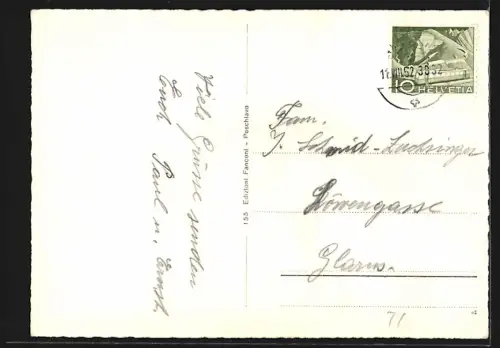 Viele Grüsse senden
Euch Paul u. Ernst.
155 Edizioni Fanconi - Poschiavo
10
HELVETIA
Fam.
J. Schmid-Luchsinger
Löwengasse
Glarus.
71